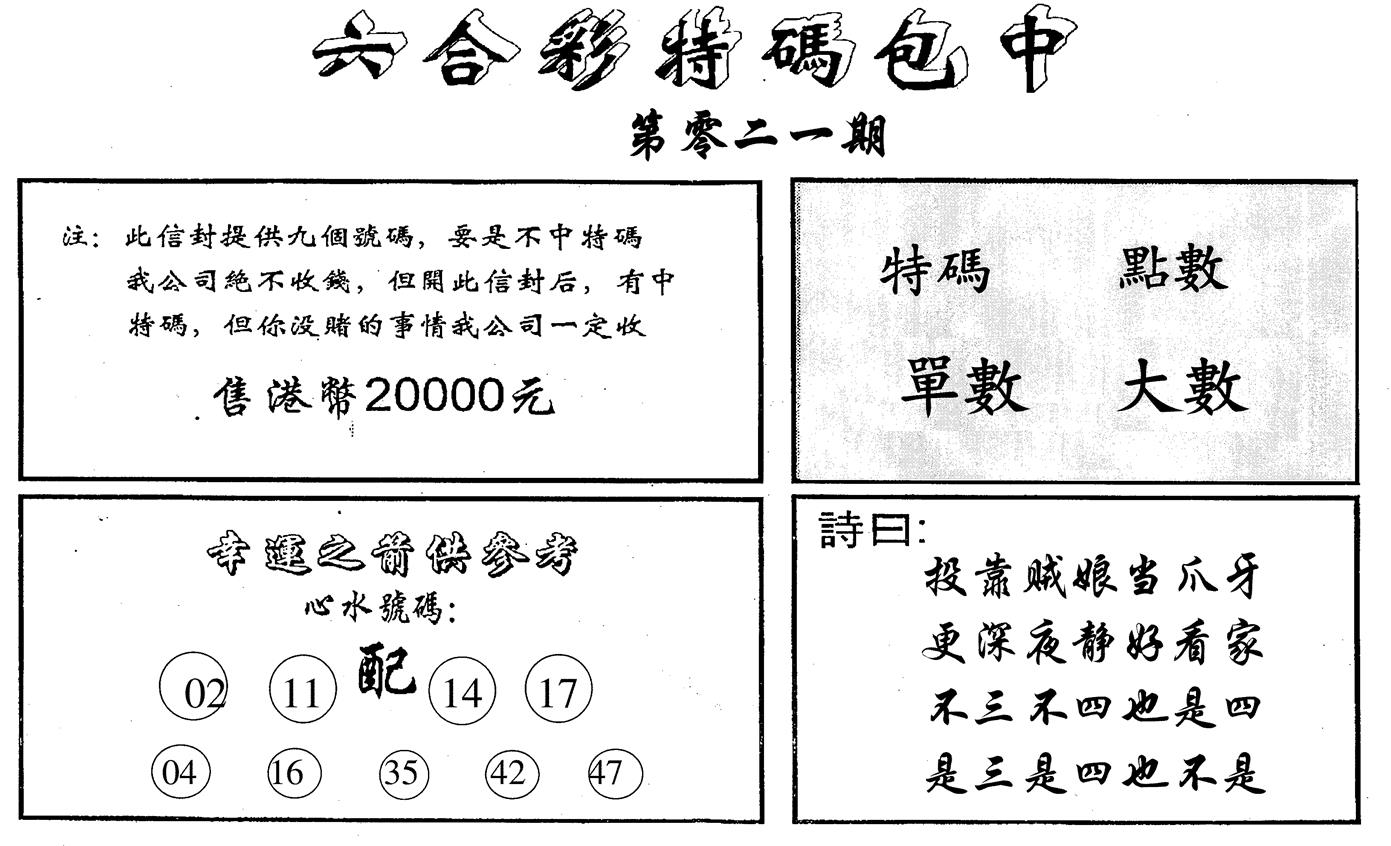 六合彩特碼包中
第零二一期
注：此信封提供九個號碼，要是不中特碼
我公司絶不收錢，但開此信封后，有中
特碼，但你没賭的事情我公司一定收
售港幣20000元
特碼 點數
單數 大數
幸運之箭供參考
心水號碼：
02 11 配 14 17
04 16 35 42 47
詩曰：
投靠贼娘当爪牙
更深夜静好看家
不三不四也是四
是三是四也不是